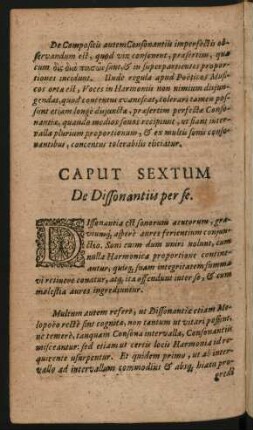 De Compositis autem Consonantiis imperfectis ob-
servandum est, quod vix consonent, præsertim, quæ
cum sint, & in superpartientes propor-
tiones incidunt. Unde regula apud Poëticos Musi-
cos orta est, Voces in Harmoniis non nimium disjun-
gendas, quod concentus evanescat, tolerari tamen pos-
sent etiam longè disjunctæ, præsertim perfectæ Conso-
nantiæ, quando medios sonos recipiunt, ut fiant inter-
valla plurium proportionum, & ex multis sonis conso-
nantibus, concentus tolerabilis eliciatur.
CAPUT SEXTUM
De Dissonantiis per se.
DIssonantia est sonorum acutorum, gra-
viumq́, asperè aures ferientium conjun-
ctio. Soni enim dum uniri nolunt, cum
nulla Harmonica proportione continean-
tur, quisq́, suam integritatem summa
vi retinere conatur, atq́, ita offendunt inter se, & cum
molestia aures ingrediuntur.
Multum autem refert, ut Dissonantiæ etiam Me-
lopoëo rectè sint cognitæ, non tantum ut vitari possint,
ne temerè, tanquam Consona intervalla, Consonantiis
misceantur: sed etiam ut certis locis Harmonia id re-
quirente usurpentur. Et quidem primo, ut ab inter-
vallo ad intervallum commodius & absq́, hiatu pro-
gredi